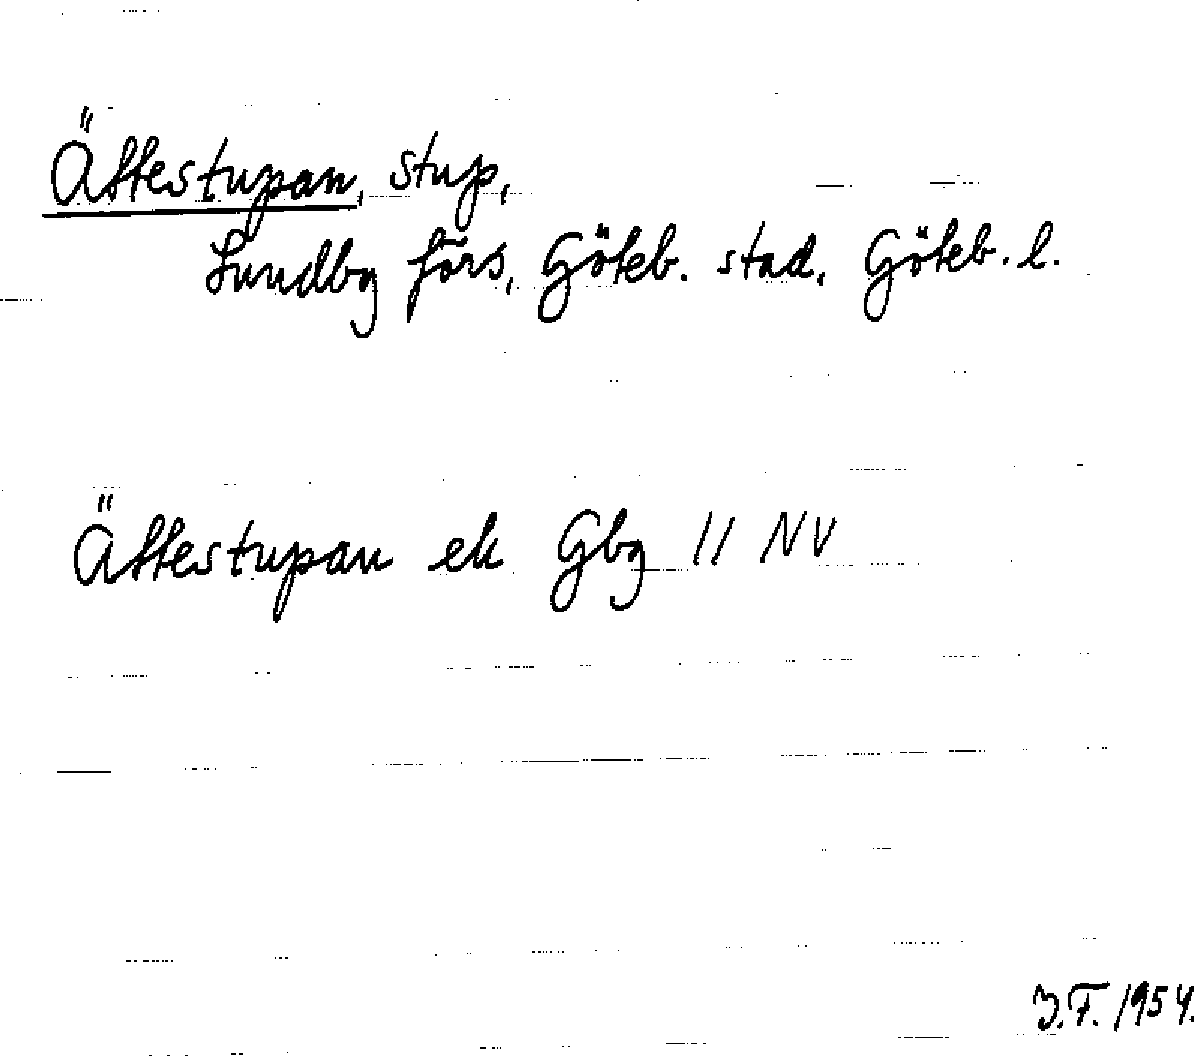 Ättestupan, stup,
Lundby förs, Göteb. stad, Göteb. l.
Ättestupan ek Gbg 11 NV
J.F. 1954.